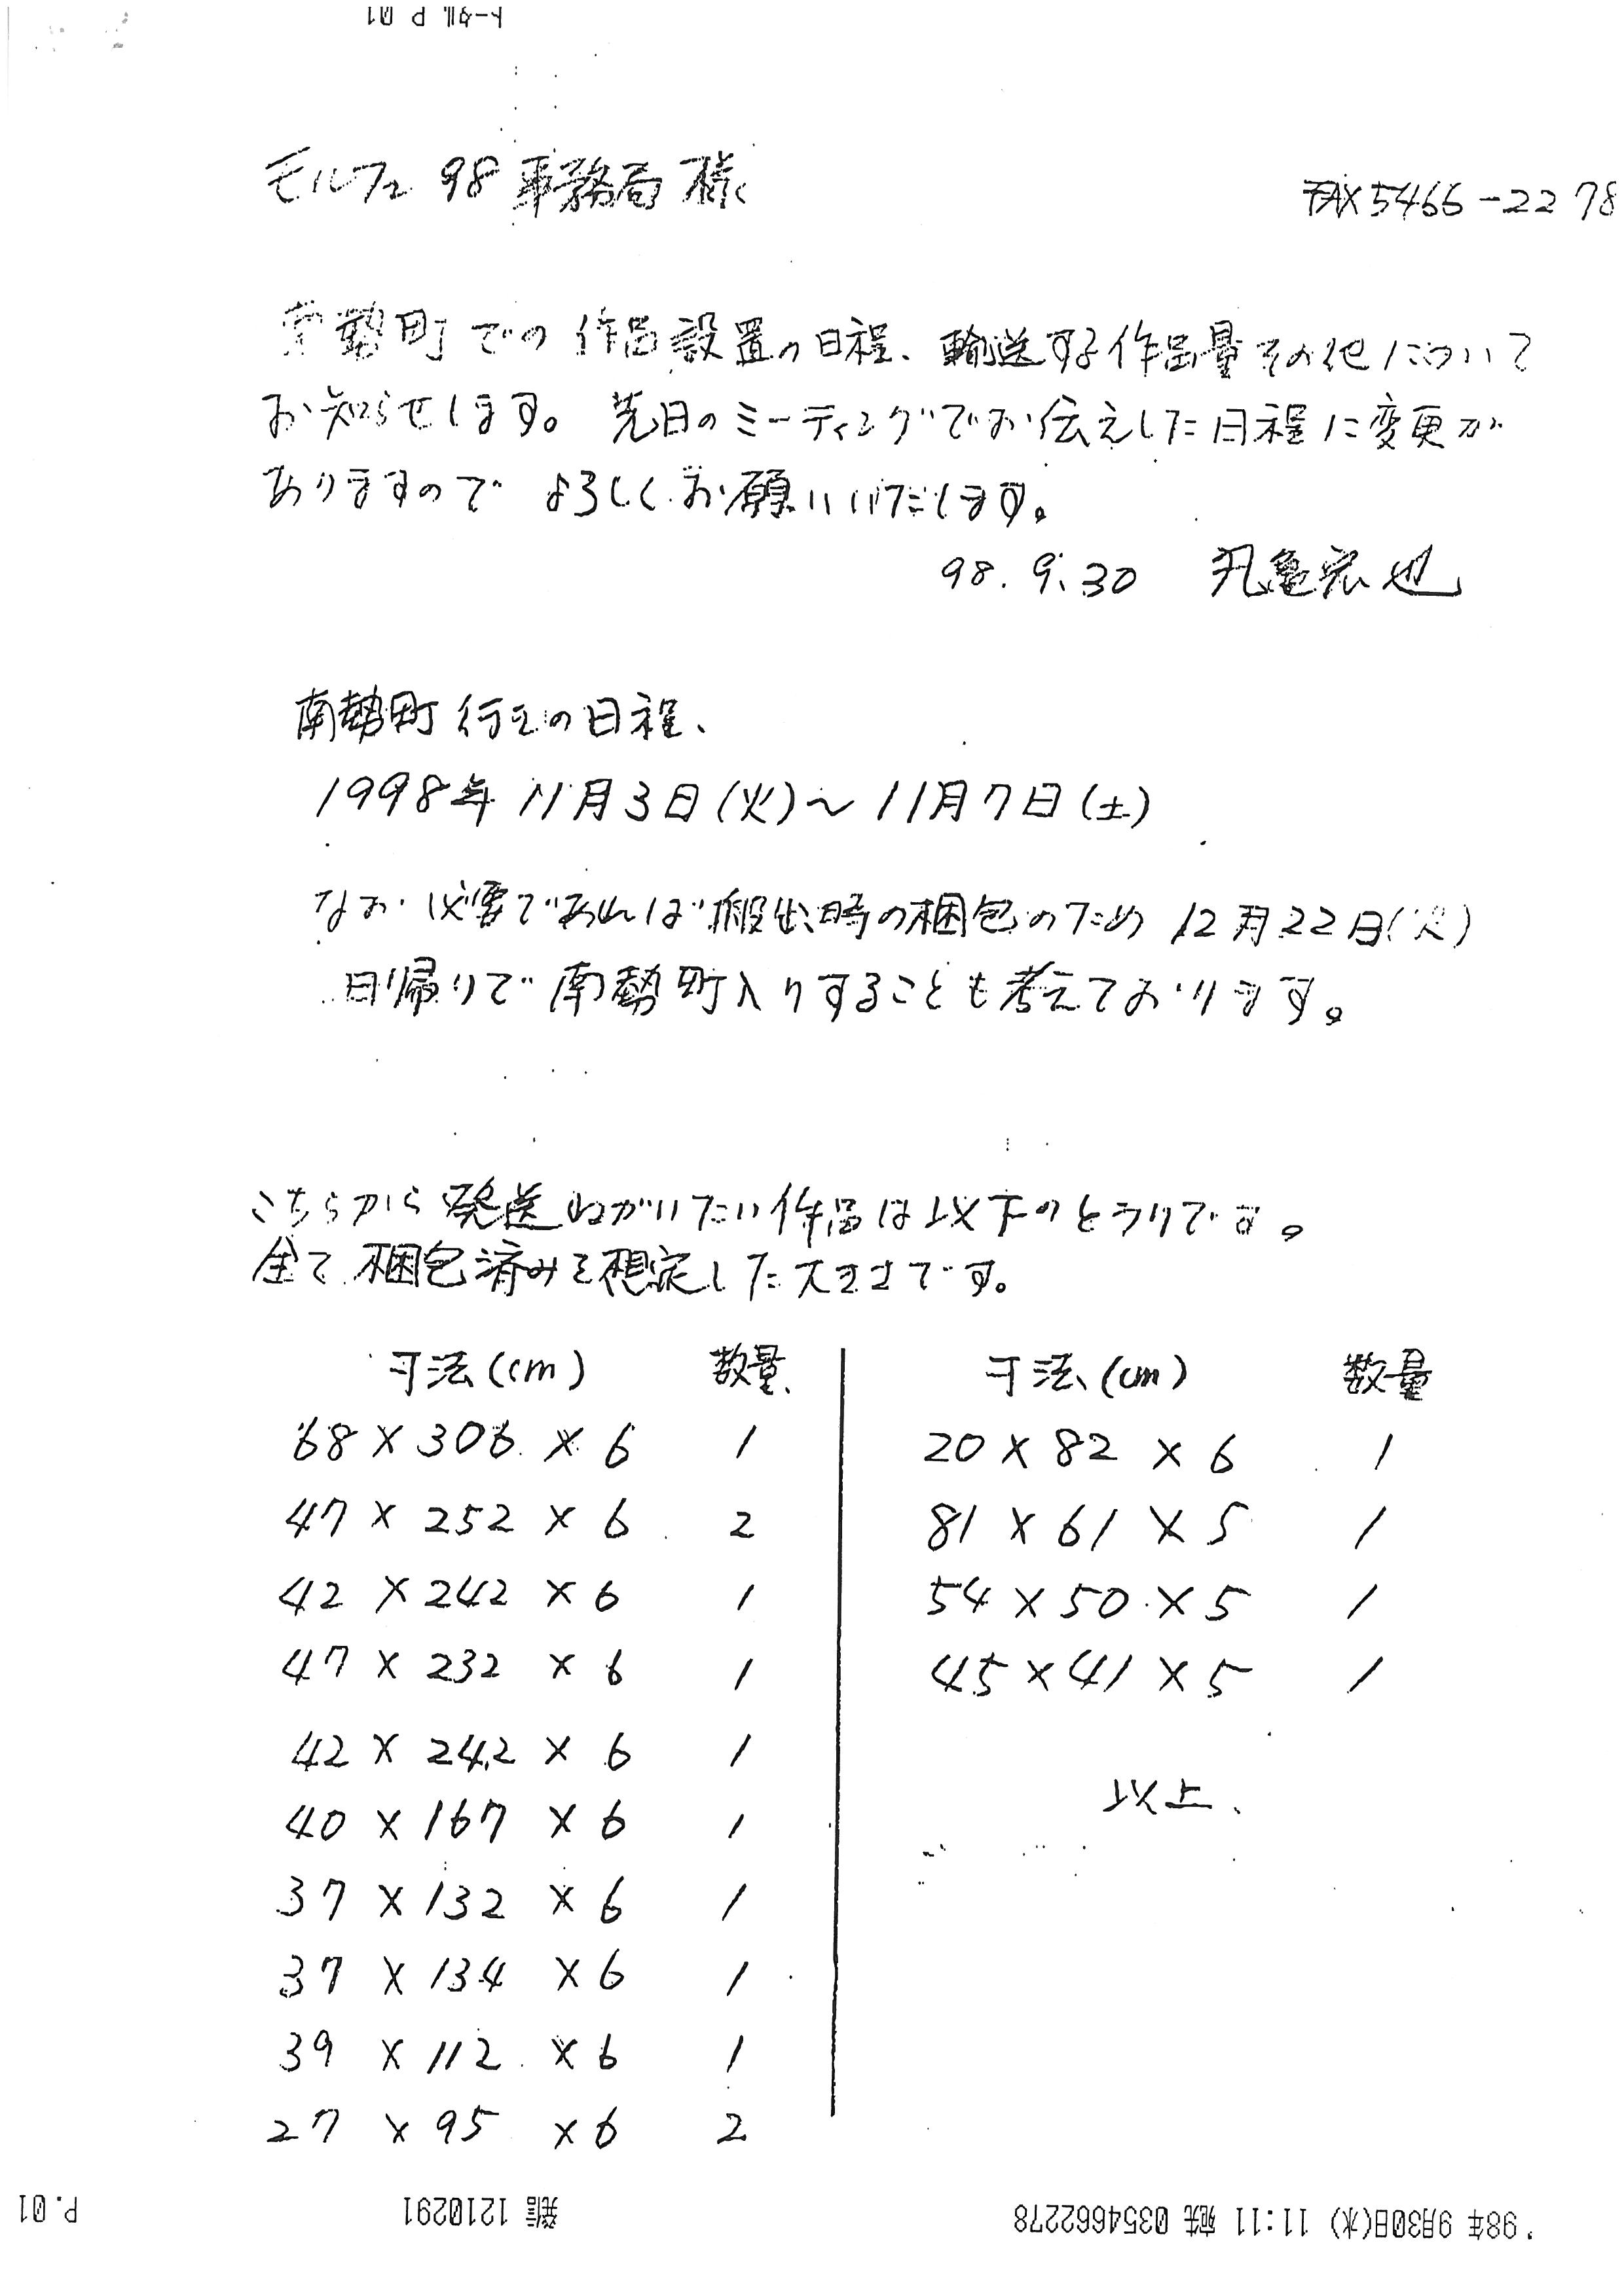 トータル P 01
モルフェ 98 事務局 様
FAX 5466-2278
南勢町での作品設置の日程、輸送する作品量その他について
お知らせします。先日のミーティングでお伝えした日程に変更が
ありますので よろしくお願いいたします。
98.9.30 丸亀宏也
南勢町行きの日程、
1998年 11月3日(火)~11月7日(土)
なお必要であれば搬出時の梱包のため 12月22日(火)
日帰りで南勢町入りすることも考えております。
こちらから発送ねがいたい作品は以下のとうりです。
全て梱包済みを想定した大きさです。
寸法(cm) 数量 寸法(cm) 数量
68×306×6 1 20×82×6 1
47×252×6 2 81×61×5 1
42×242×6 1 54×50×5 1
47×232×6 1 45×41×5 1
42×242×6 1
以上、
40×167×6 1
37×132×6 1
37×134×6 1
39×112×6 1
27×95×6 2
'98年 9月30日(水) 11:11 宛先 0354662278 発信 1210291 P.01